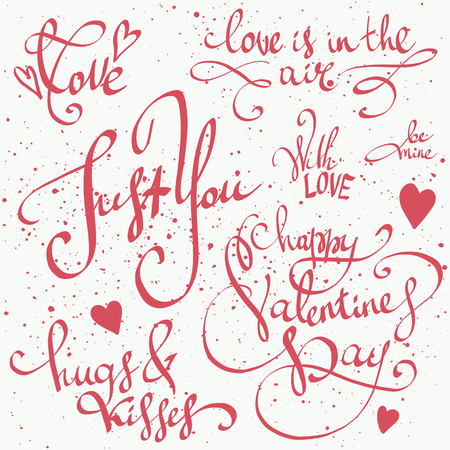 Love
love is in the
air
Just You
With
LOVE
be
mine
happy
Valentines
Day
hugs &
kisses